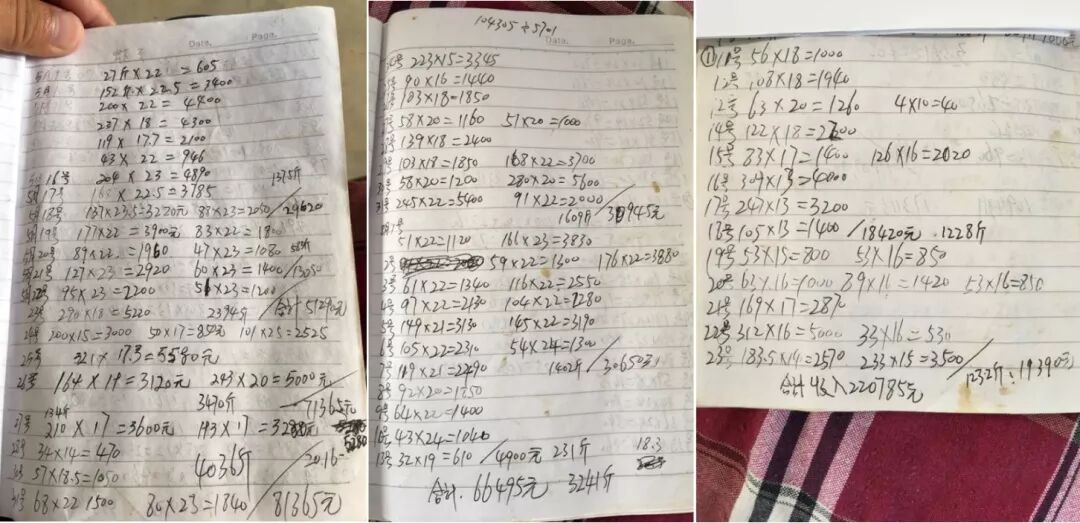 Date. Page.
27斤×22 =605
152斤×22.5=3400
200×22=4400
237×18=4300
119×17.7=2100
43×22=946
16号 204×23=4890
17号 168×22.5=3785 1375斤
18号 137×23.5=3220元 88×23=2050/29620
19号 177×22=3900元 83×22=1800
20号 89×22=1960 47×23=1080 583斤
21号 127×23=2920 60×23=1400/13050
22号 95×23=2200 51×23=1200
23号 290×18=5220 2394斤 合计51290元
24号 200×15=3000 50×17=850元 101×25=2525
25号 321×17.3=5590元
26号 164×19=3120元 243×20=5000元
3470斤 71365元
134斤
27号 210×17=3600元 193×17=3280元
5280
28号 34×14=470 4036斤 20.16
57×18.5=1050
68×22 1500 80×23=1840 81365元
104305 5701
Date. Page.
223×15=3345
90×16=1440
103×18=1850
58×20=1160 51×20=1000
139×18=2400
103×18=1850 168×22=3700
58×20=1200 280×20=5600
245×22=5400 91×22=2000
1609斤 30945元
51×22=1120 166×23=3830
2号 59×22=1300 176×22=3880
3号 61×22=1340 116×22=2550
4号 97×22=2130 104×22=2280
5号 149×21=3130 145×22=3190
6号 105×22=2310 54×24=1300
7号 119×21=2490 1402斤 30650元
8号 92×20=1850
9号 64×22=1400
10号 43×24=1040
13号 32×19=610 4900元 231斤 18.3
合计. 66495元 3241斤
① 11号 56×18=1000
12号 108×18=1940
12号 63×20=1260 4×10=40
14号 122×18=2200
15号 83×17=1400 126×16=2020
16号 309×13=4000
17号 247×13=3200
18号 105×13=1400/18420元. 1228斤
19号 53×15=800 53×16=850
20号 63×16=1000 89×16=1420 53×16=850
21号 169×17=2870
22号 312×16=5000 33×16=530
23号 183.5×14=2570 233×15=3500
1232斤: 19390元
合计收入220785元